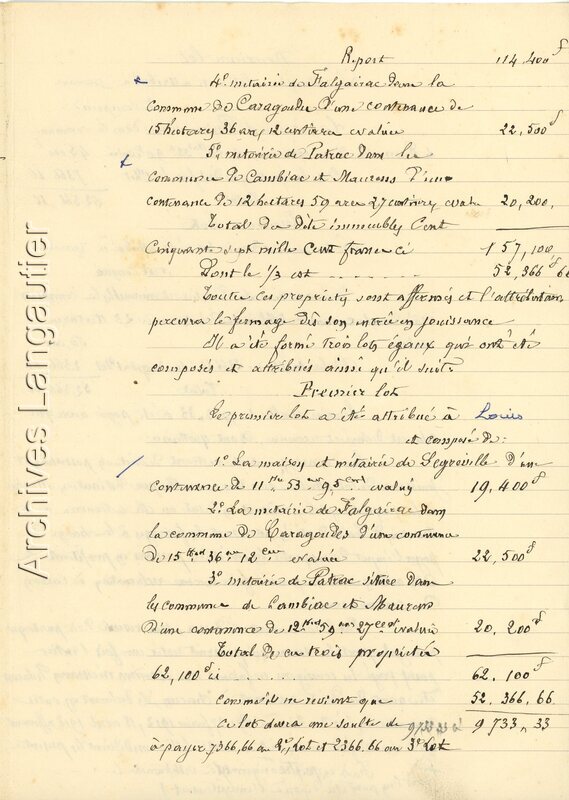 Report 114,400f
4º métairie de Falgairac dans la
Commune de Caragoudes d'une contenance de
15 hectares 36 ares 12 centiares évaluée 22,500f
5º métairie de Patrac dans les
Communes de Cambiac et Maurens d'une
contenance de 12 hectares 59 ares 27 centiares évalu 20,200,
Total des dits immeubles Cent
Cinquante sept mille Cent francs ci 157,100
Dont le 1/3 est ........ 52,366 66
Toutes ces propriétés sont affermés et l'attributaire
percevra le fermage dès son entrée en jouissance
Il a été formé trois lots égaux qui ont été
composés et attribués ainsi qu'il suit:
Premier lot
Le premier lot a été attribué à Louis
et composé de:
1º La maison et métairie de Ségreville d'une
Contenance de 11 Hes 53 ares 95 Cent évalué 19,400f
2º La métairie de Falgairac dans
la commune de Caragoudes d'une contenance
de 15 Hect 36 ares 12 Cen évaluée 22,500f
3º métairie de Patrac située dans
les communes de Cambiac et Maurens
d'une contenance de 12 Hect 59 ares 27 cent évaluée 20,200f
Total de ces trois propriétés
62,100f ci ........ 62,100f
comme il ne revient que 52,366,66
ce lot devra une soulte de 9733 33 ci 9733,33
à payer 7366,66 au 2e lot et 2366,66 au 3e Lot
Archives Langautier